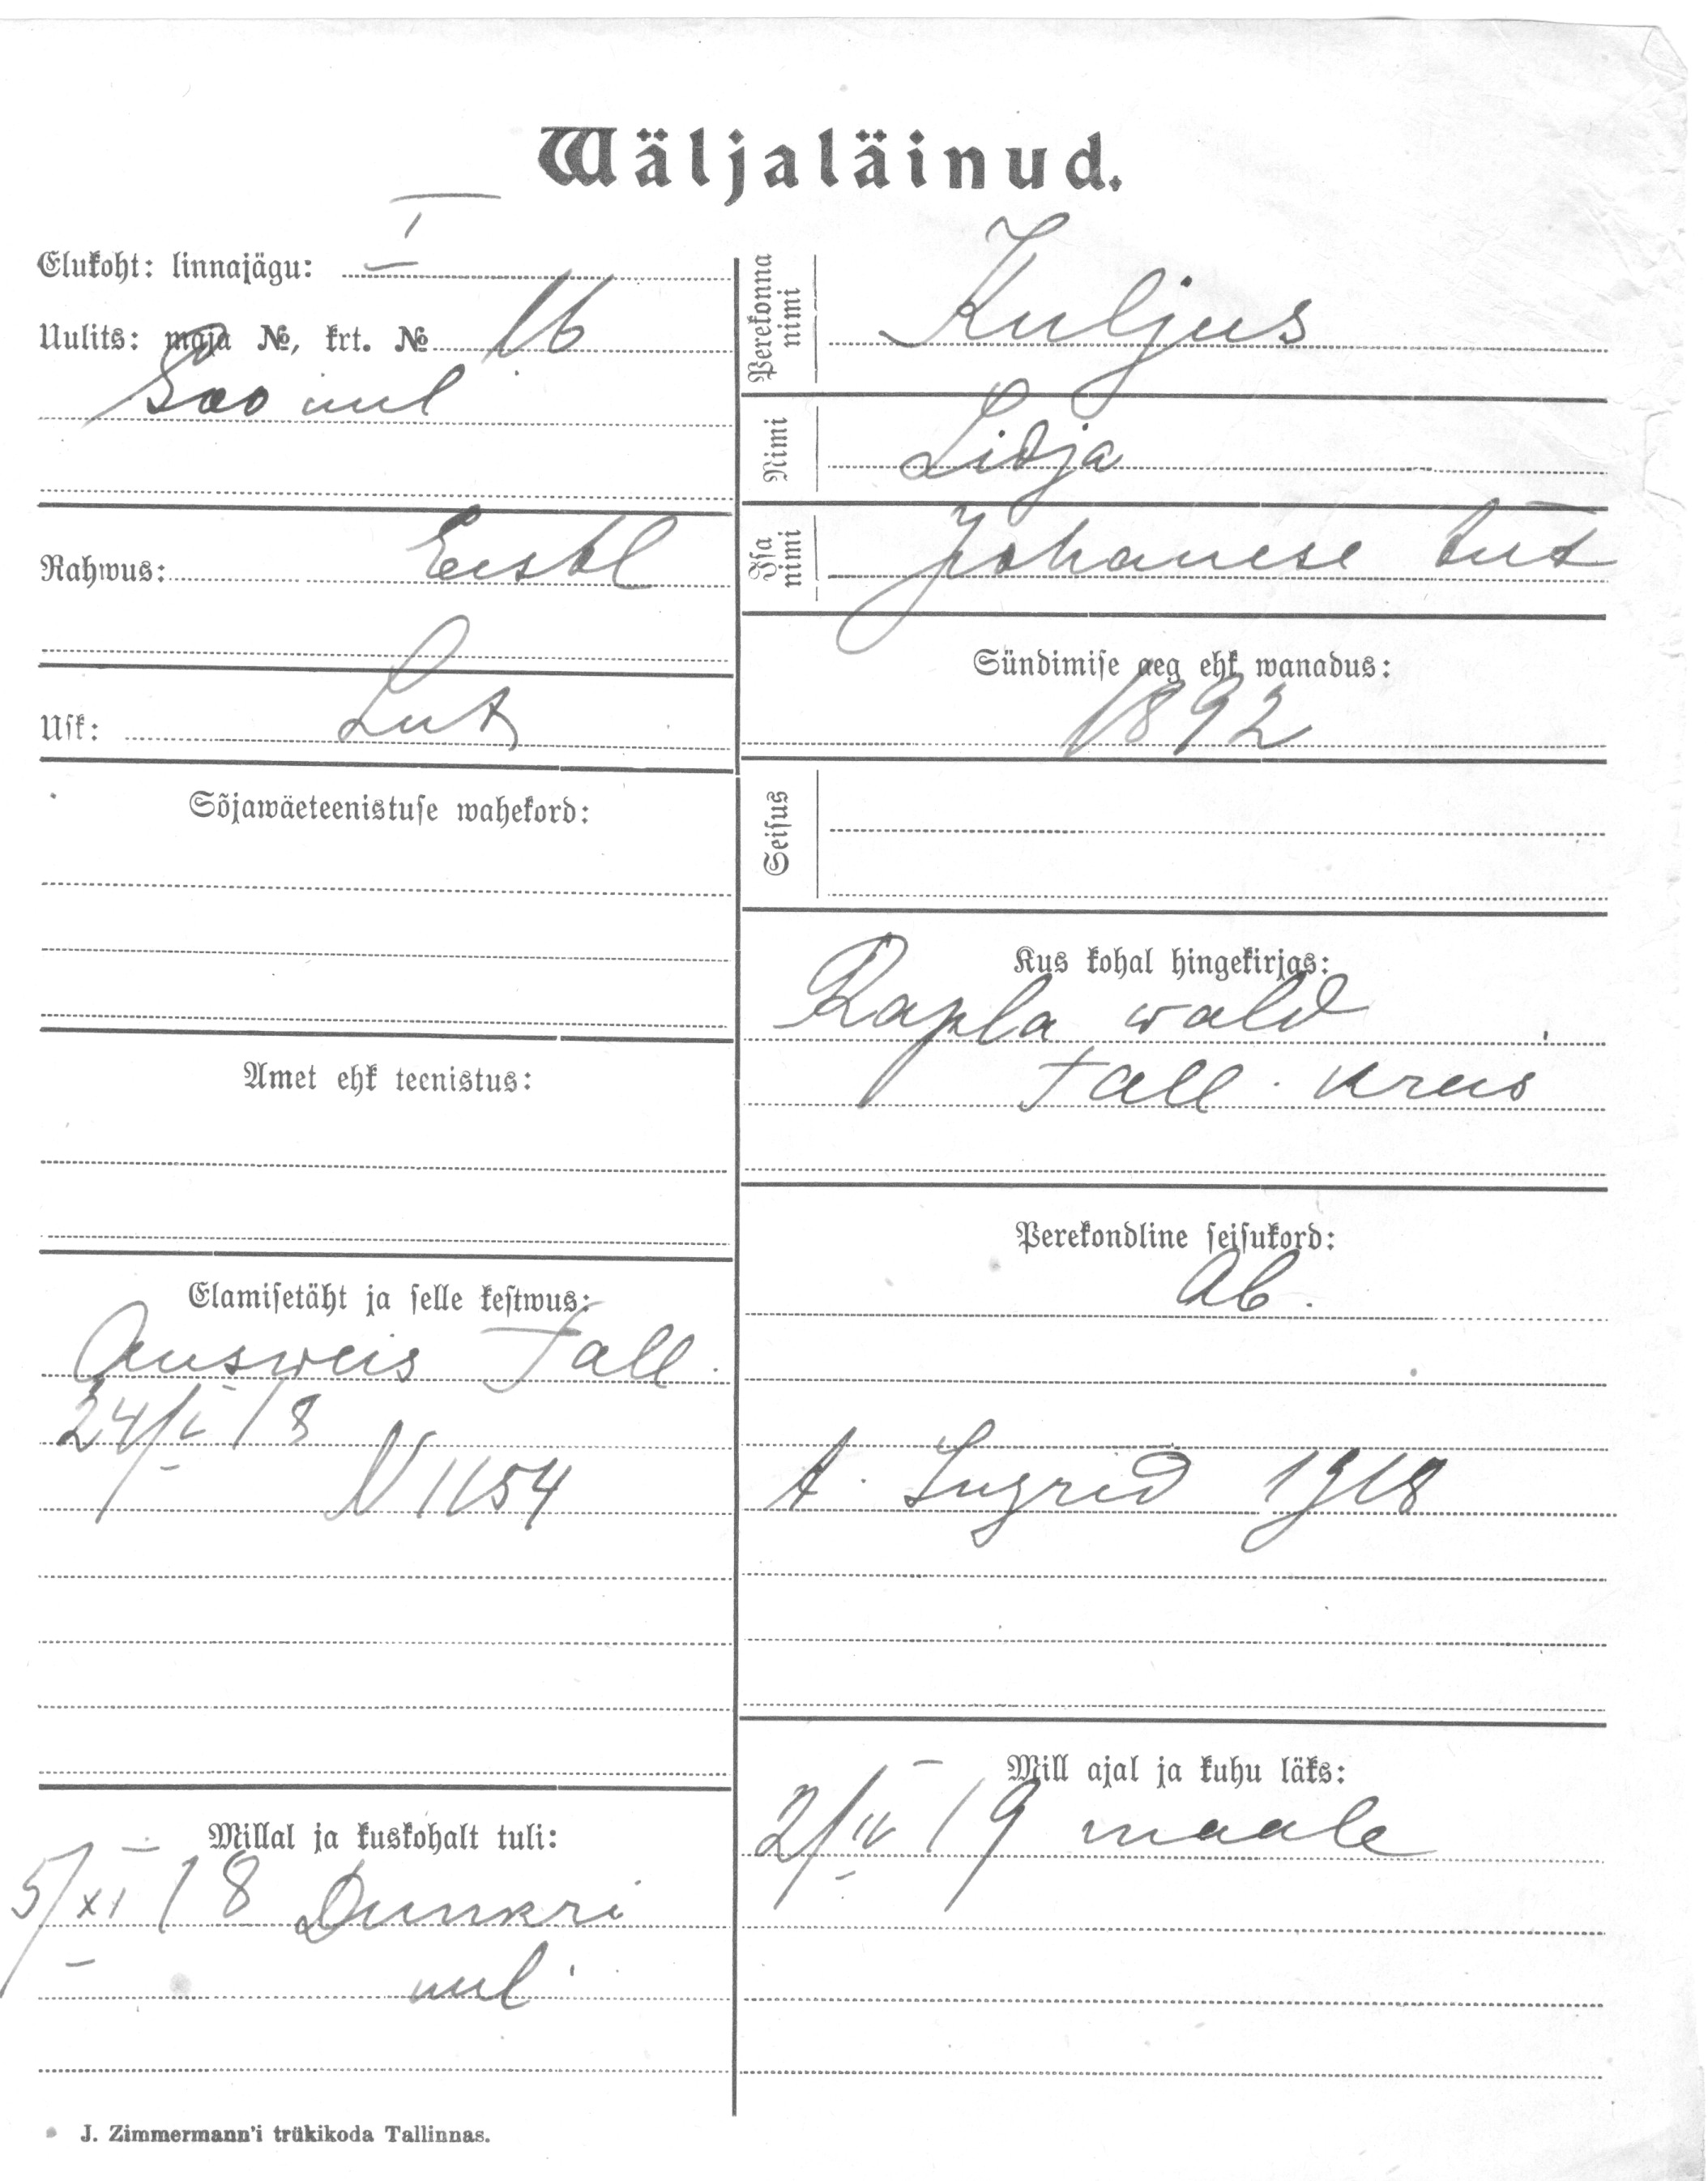 Wäljaläinud.
Elukoht: linnajägu: I
Uulits: maja №, krt. № 16
Soo uul
Rahwus: Eestl
Usk: Lut
Sõjawäeteenistuse wahekord:
Amet ehk teenistus:
Elamisetäht ja selle kestwus:
Ausweis Tall.
24/V 18
N 1154
Millal ja kuskohalt tuli:
5/XI 18 Dunkri
uul.
Perekonna nimi
Kuljus
Nimi
Lidja
Isa nimi
Johanese tüt
Sündimise aeg ehk wanadus:
1892
Seisus
Kus kohal hingekirjas:
Rapla wald
Tall. kreis
Perekondline seisukord:
Ab.
t. Ingrid 1918
Mill ajal ja kuhu läks:
2/IV 19 maale
J. Zimmermann'i trükikoda Tallinnas.